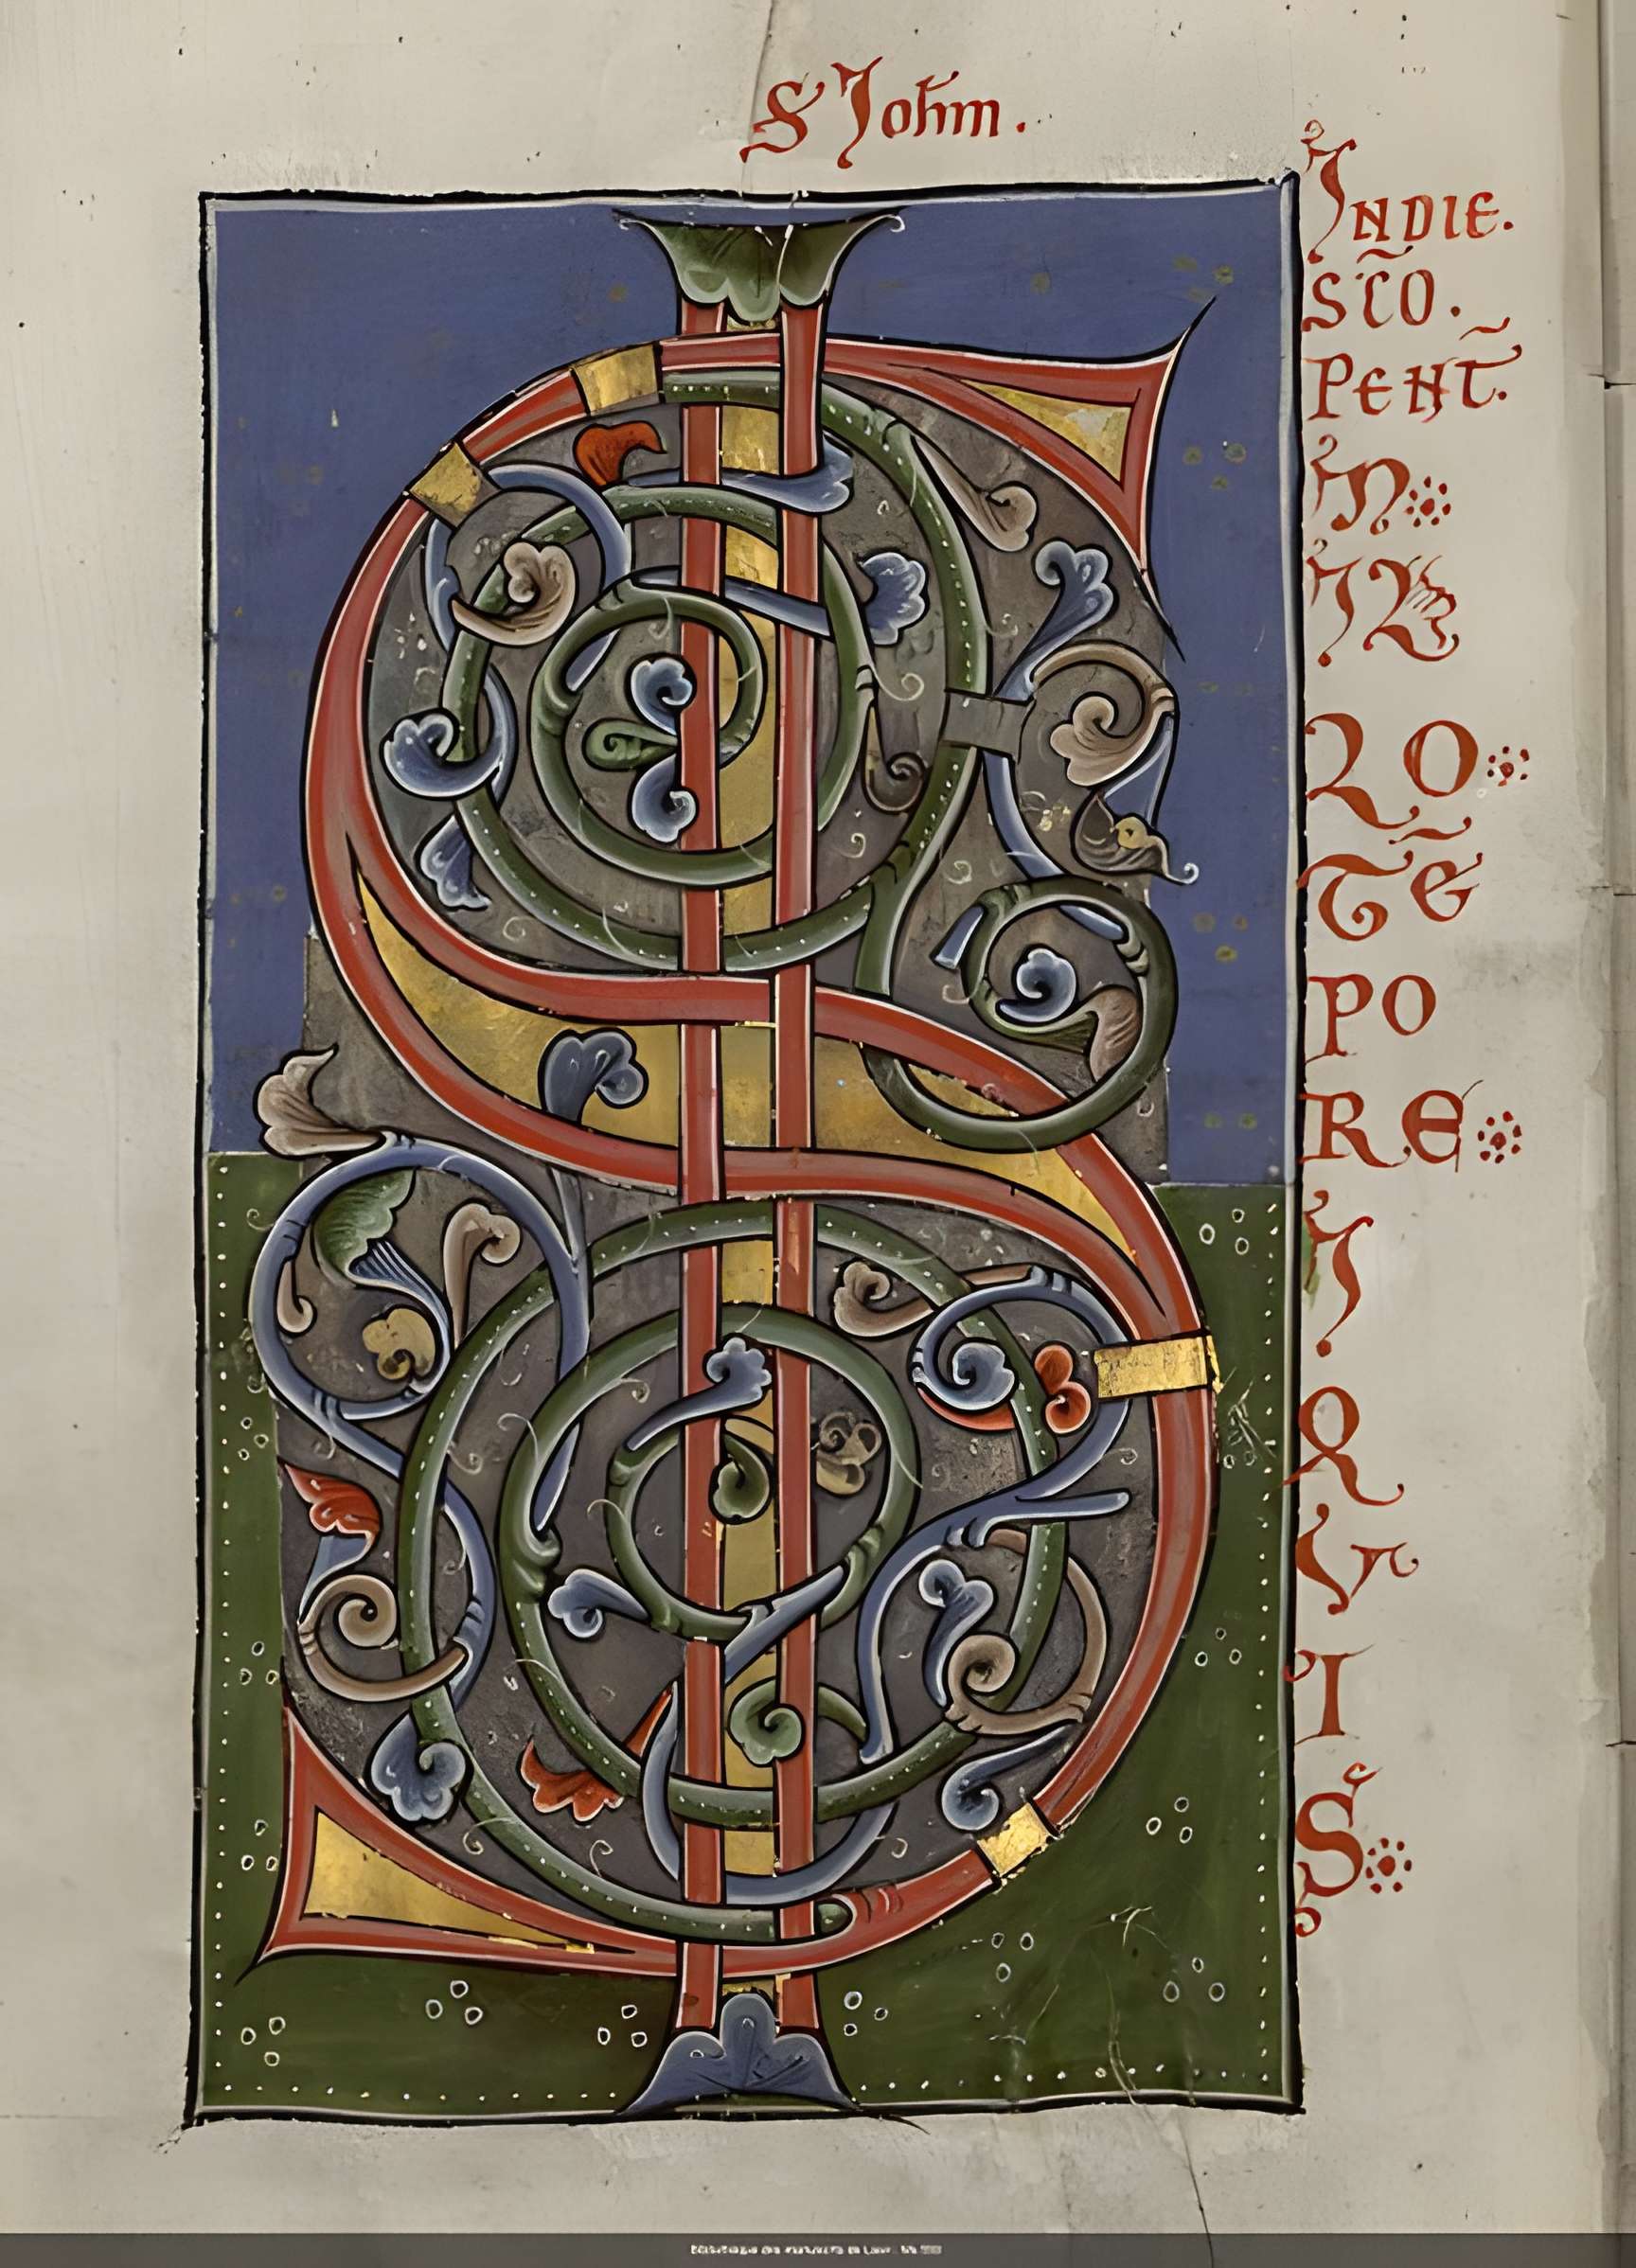 S Johm.
S
INDIE.
SC̃O.
PENT̃.
IN
IL
LO
TẼ
PO
RE
I
Q
V
I
S